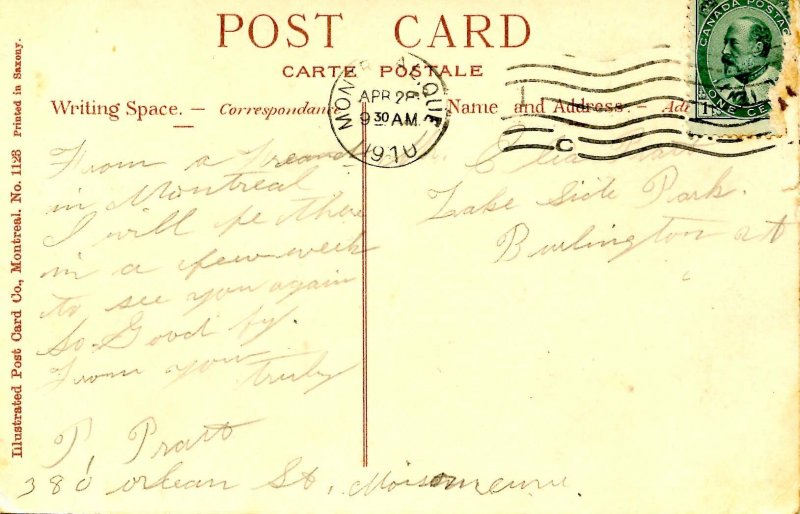 POST CARD
CARTE POSTALE
Writing Space. — Correspondance
Name and Address. — Ad
MONTREAL, QUE
APR 2
9 30 AM
1910
C
CANADA POSTAGE
ONE CENT
1
From a Freand
in Montreal
I will be there
in a few week
to see you again
so Good by.
From your
truly
P. Pratt
380 Orlean St,
Lake Side Park.
Burlington
Illustrated Post Card Co., Montreal. No. 1128 Printed in Saxony.